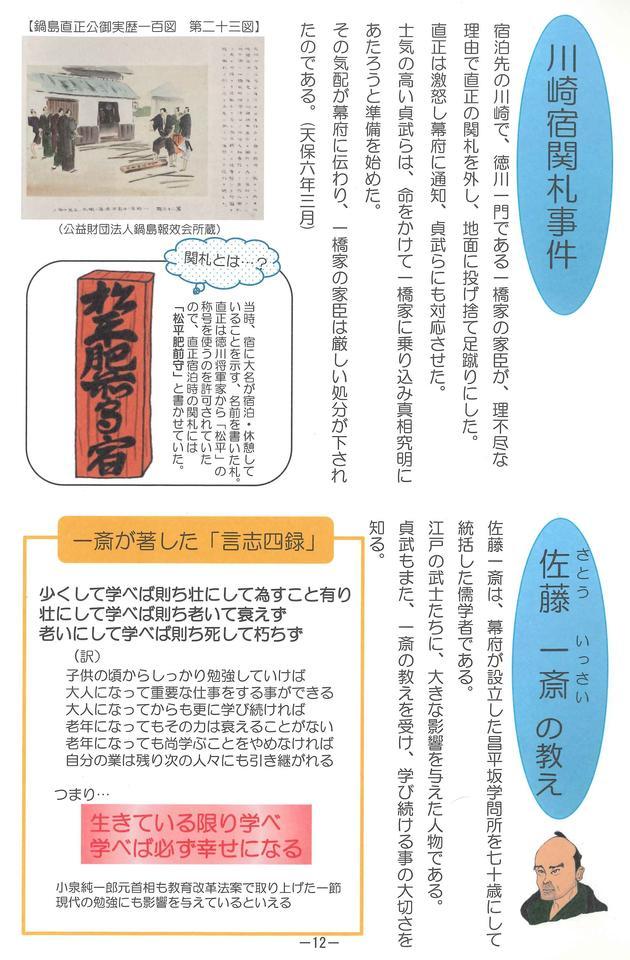 川崎宿関札事件
宿泊先の川崎で、徳川一門である一橋家の家臣が、理不尽な
理由で直正の関札を外し、地面に投げ捨て足蹴りにした。
直正は激怒し幕府に通知、貞武らにも対応させた。
士気の高い貞武らは、命をかけて一橋家に乗り込み真相究明に
あたろうと準備を始めた。
その気配が幕府に伝わり、一橋家の家臣は厳しい処分が下され
たのである。（天保六年三月）
【鍋島直正公御実歴一百図　第二十三図】
（公益財団法人鍋島報效会所蔵）
関札とは…？
当時、宿に大名が宿泊・休憩して
いることを示す、名前を書いた札。
直正は徳川将軍家から「松平」の
称号を使うのを許可されていた
ので、直正宿泊時の関札には
「松平肥前守」と書かせていた。
松平肥前守宿
さとう　いっさい
佐藤　一斎　の教え
佐藤一斎は、幕府が設立した昌平坂学問所を七十歳にして
統括した儒学者である。
江戸の武士たちに、大きな影響を与えた人物である。
貞武もまた、一斎の教えを受け、学び続ける事の大切さを
知る。
一斎が著した「言志四録」
少くして学べば則ち壮にして為すこと有り
壮にして学べば則ち老いて衰えず
老いにして学べば則ち死して朽ちず
（訳）
子供の頃からしっかり勉強していけば
大人になって重要な仕事をする事ができる
大人になってからも更に学び続ければ
老年になってもその力は衰えることがない
老年になっても尚学ぶことをやめなければ
自分の業は残り次の人々にも引き継がれる
つまり…
生きている限り学べ
学べば必ず幸せになる
小泉純一郎元首相も教育改革法案で取り上げた一節
現代の勉強にも影響を与えているといえる
―12―